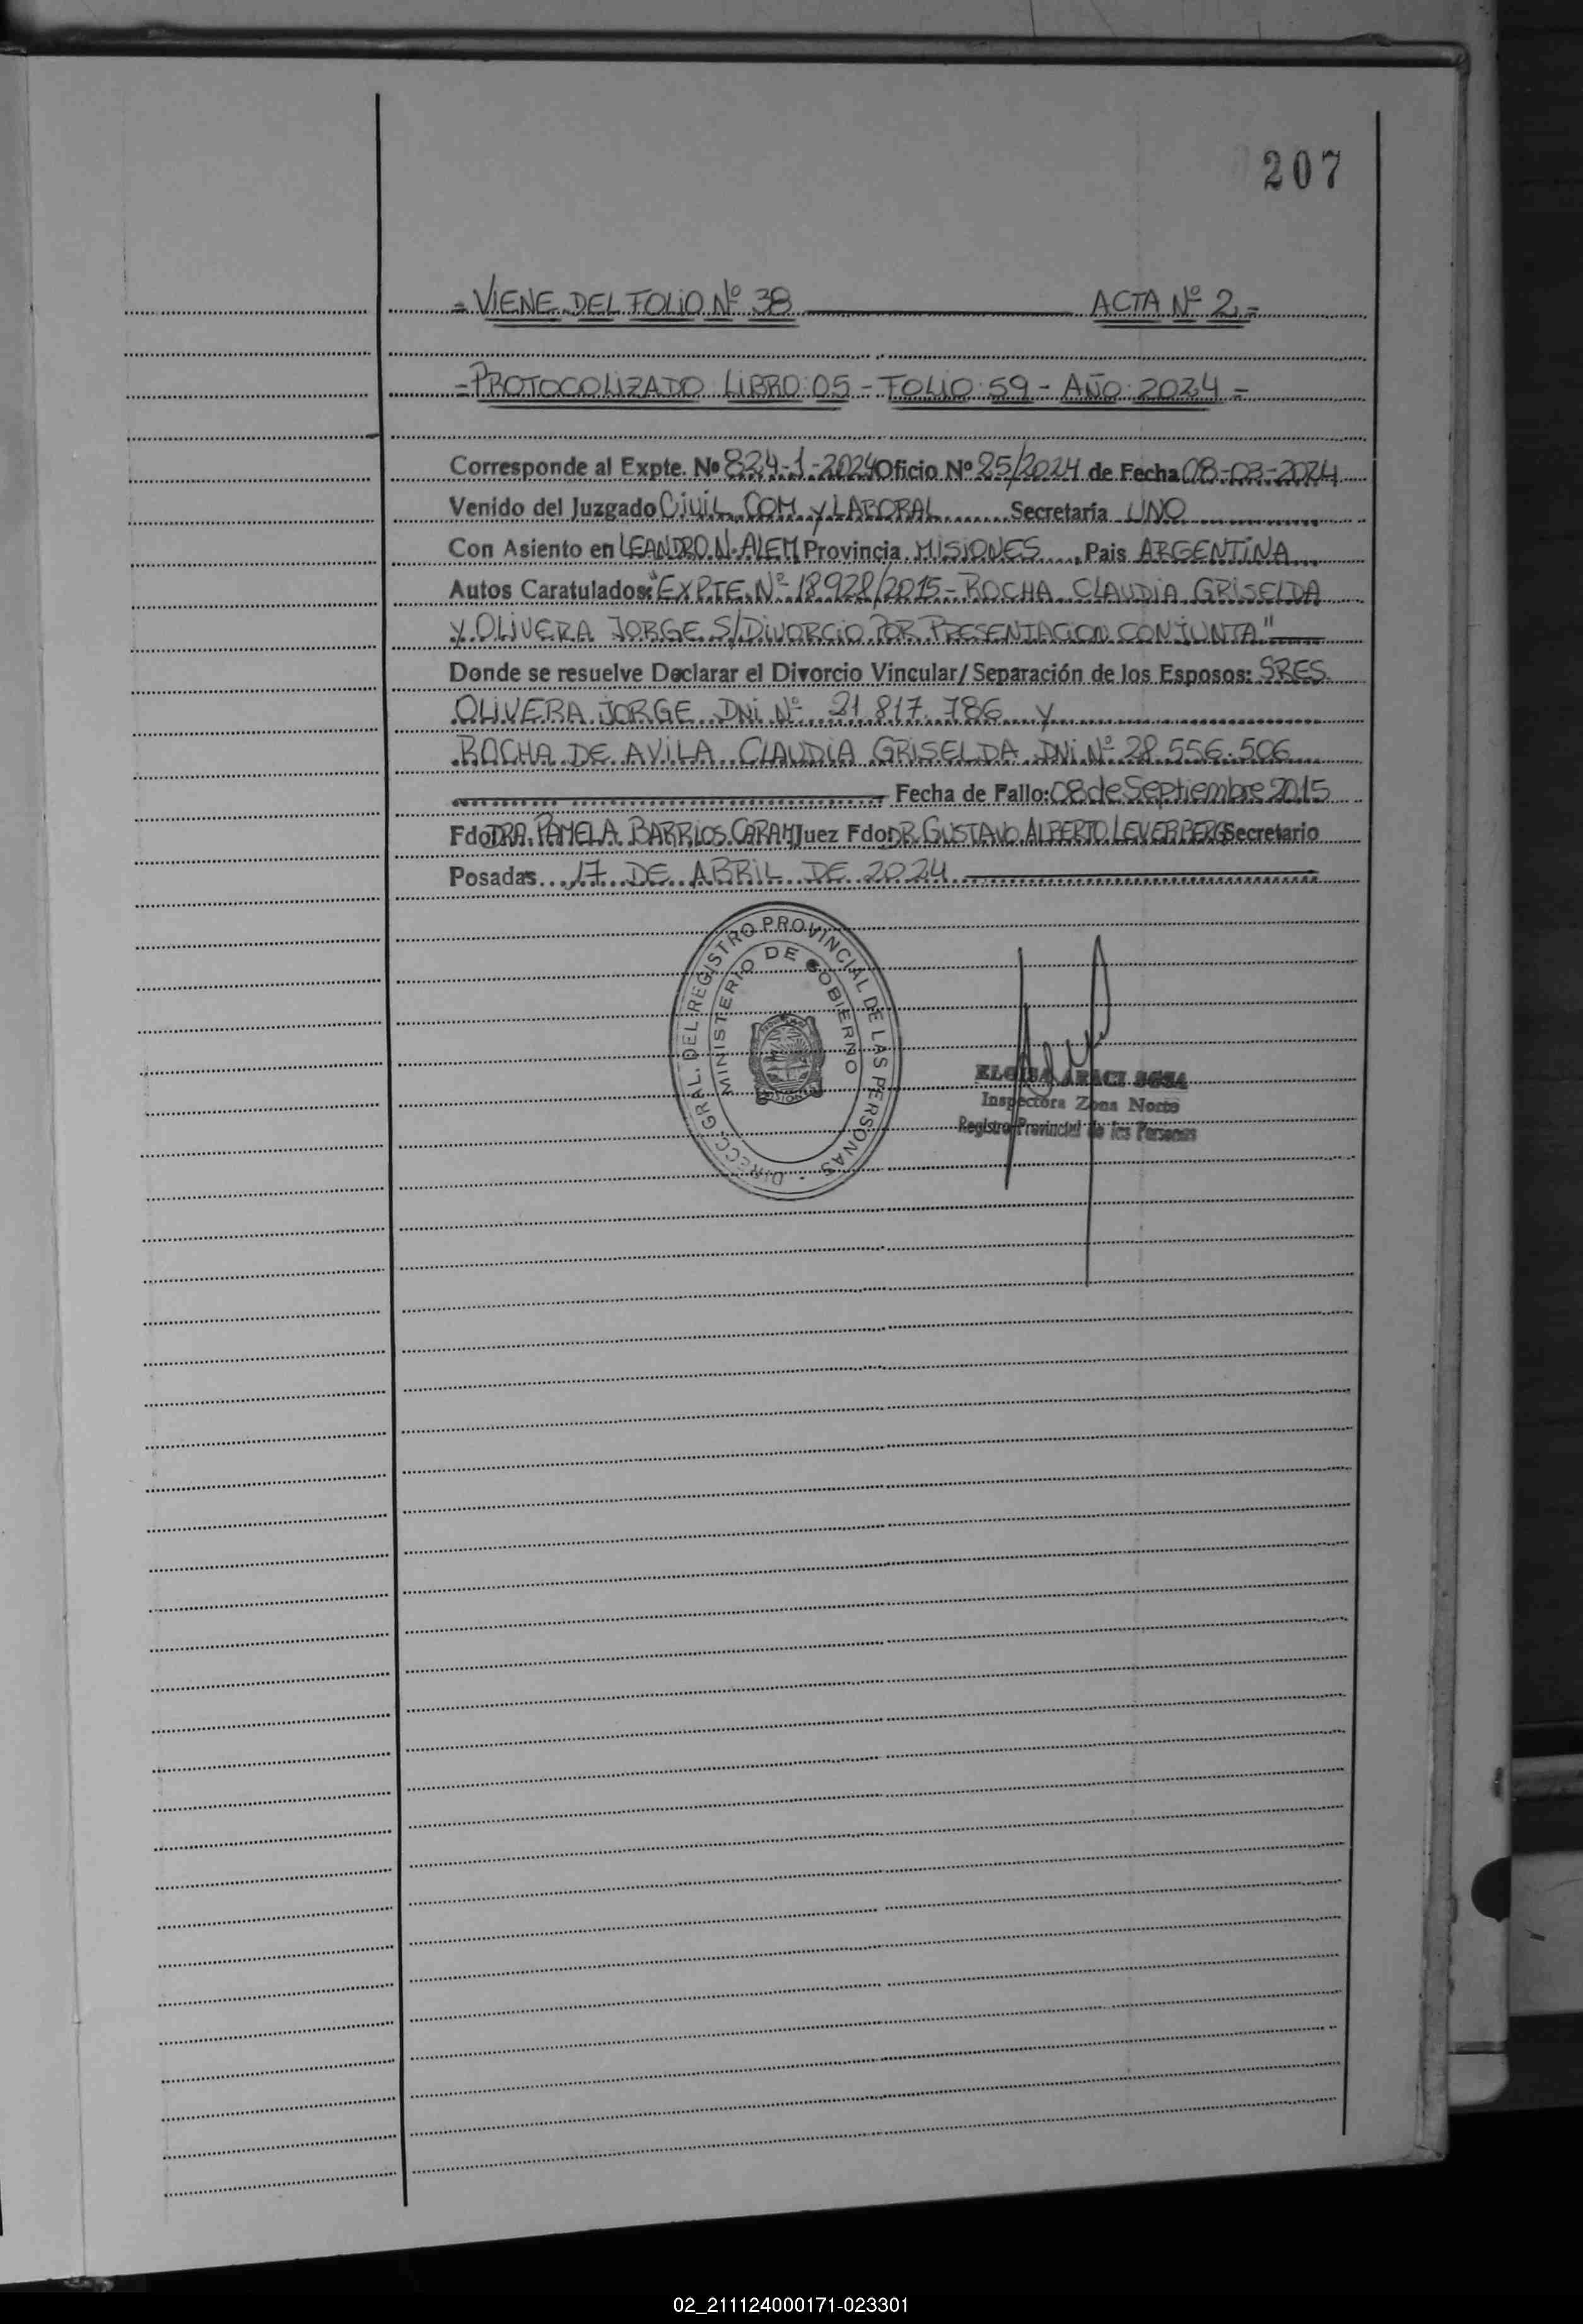 207
- VIENE DEL FOLIO Nº 38 ACTA Nº 2 -
- PROTOCOLIZADO LIBRO: 05 - FOLIO: 59 - AÑO: 2024 -
Corresponde al Expte. Nº 824-1-2024 Oficio Nº 25/2024 de Fecha 08-03-2024
Venido del Juzgado CIVIL, COM. Y LABORAL Secretaría UNO
Con Asiento en LEANDRO N. ALEM Provincia MISIONES Pais ARGENTINA
Autos Caratulados: "EXPTE. Nº 18928/2015 - ROCHA CLAUDIA GRISELDA
Y OLIVERA JORGE S/DIVORCIO POR PRESENTACION CONJUNTA"
Donde se resuelve Declarar el Divorcio Vincular/Separación de los Esposos: SRES.
OLIVERA JORGE DNI Nº 21.817.786 Y
ROCHA DE AVILA CLAUDIA GRISELDA DNI Nº 28.556.506
Fecha de Fallo: 08 de Septiembre 2015
Fdo DRA. PAMELA BARRIOS CARAM Juez Fdo: DR. GUSTAVO ALBERTO LEVERBERG Secretario
Posadas 17 DE ABRIL DE 2024
DIRECC. GRAL. DEL REGISTRO PROVINCIAL DE LAS PERSONAS
MINISTERIO DE GOBIERNO
ELOISA ARACI SOSA
Inspectora Zona Norte
Registro Provincial de las Personas
02_211124000171-023301